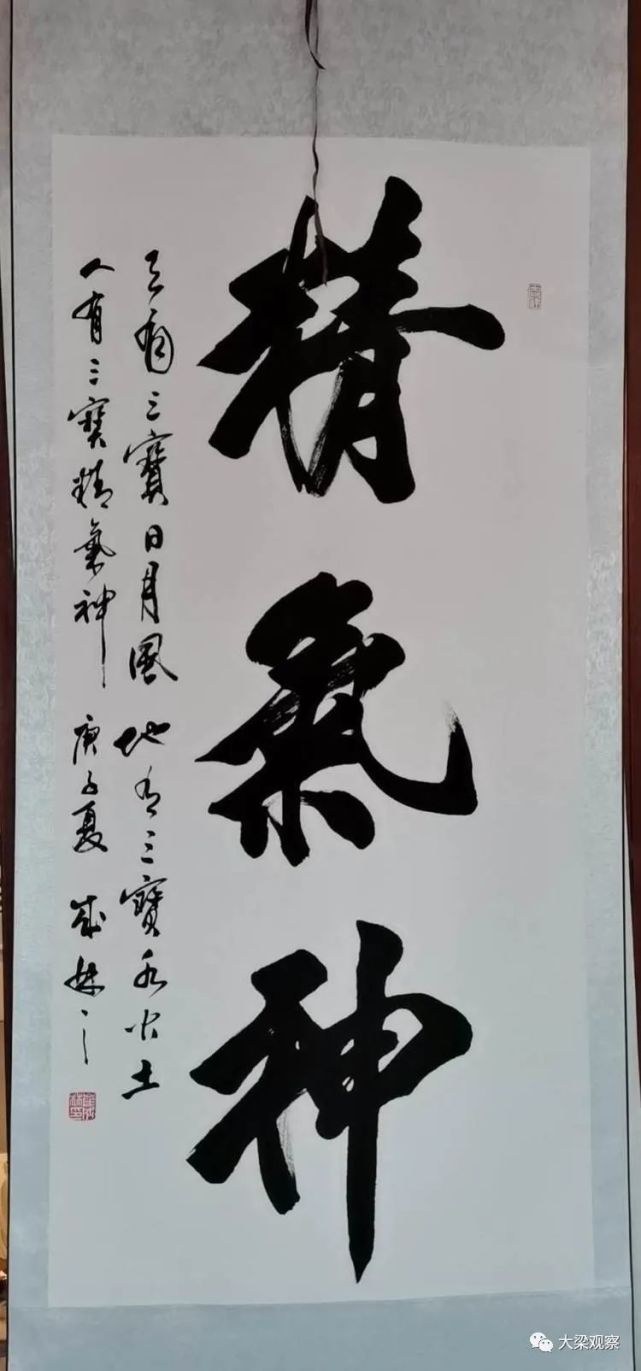 精氣神
天有三寶日月風 地有三寶水火土
人有三寶精氣神 庚子夏 成林
大梁观察